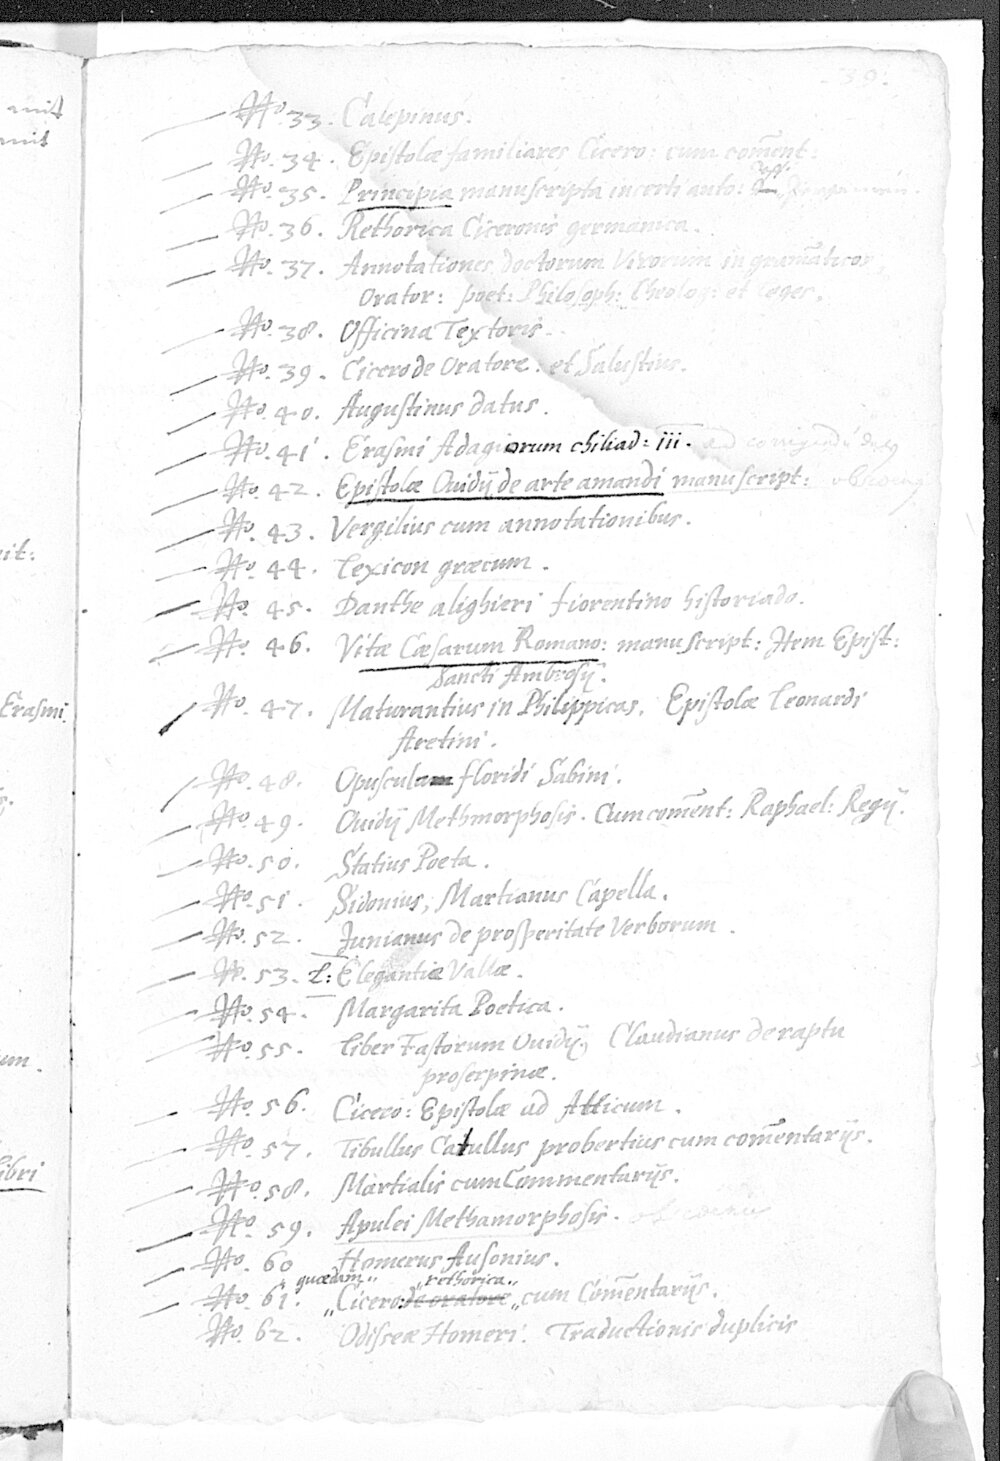 39.
No. 33. Calepinus.
No. 34. Epistolæ familiares Cicero: cum com̄ent:
No. 35. Principia manuscripta incerti auto:
No. 36. Rethorica Ciceronis germanica.
No. 37. Annotationes doctorum Virorum in gram̄aticos
Orator: poet: Philosoph: Theolog: et leges.
No. 38. Officina Textoris.
No. 39. Cicero de Oratore. et Salustius.
No. 40. Augustinus datus.
No. 41. Erasmi Adagiorum chiliad: iii. ad corrigendū
No. 42. Epistolæ Ouidij de arte amandi manuscript:
No. 43. Vergilius cum annotationibus.
No. 44. Lexicon græcum.
No. 45. Danthe alighieri fiorentino historiado.
No. 46. Vitæ Cæsarum Romano: manuscript: Item Epist:
Sancti Ambrosij.
No. 47. Maturantius in Philippicas. Epistolæ Leonardi
Aretini.
No. 48. Opuscula floridi Sabini.
No. 49. Ouidij Methmorphosis. Cum com̄ent: Raphael: Regij.
No. 50. Statius Poeta.
No. 51. Sidonius, Martianus Capella.
No. 52. Iunianus de prosperitate Verborum.
No. 53. L: Elegantiæ Vallæ.
No. 54. Margarita Poetica.
No. 55. Liber Fastorum Ouidij, Claudianus de raptu
proserpinæ.
No. 56. Cicero: Epistolæ ad Atticum.
No. 57. Tibullus Catullus probertius cum com̄entarijs.
No. 58. Martialis cum Commentarijs.
No. 59. Apulei Methamorphosis.
No. 60 Homerus Ausonius.
quædam „ „rethorica„
No. 61. „Cicero: de oratore „cum Com̄entarijs.
No. 62. Odisseæ Homeri. Traductionis duplicis